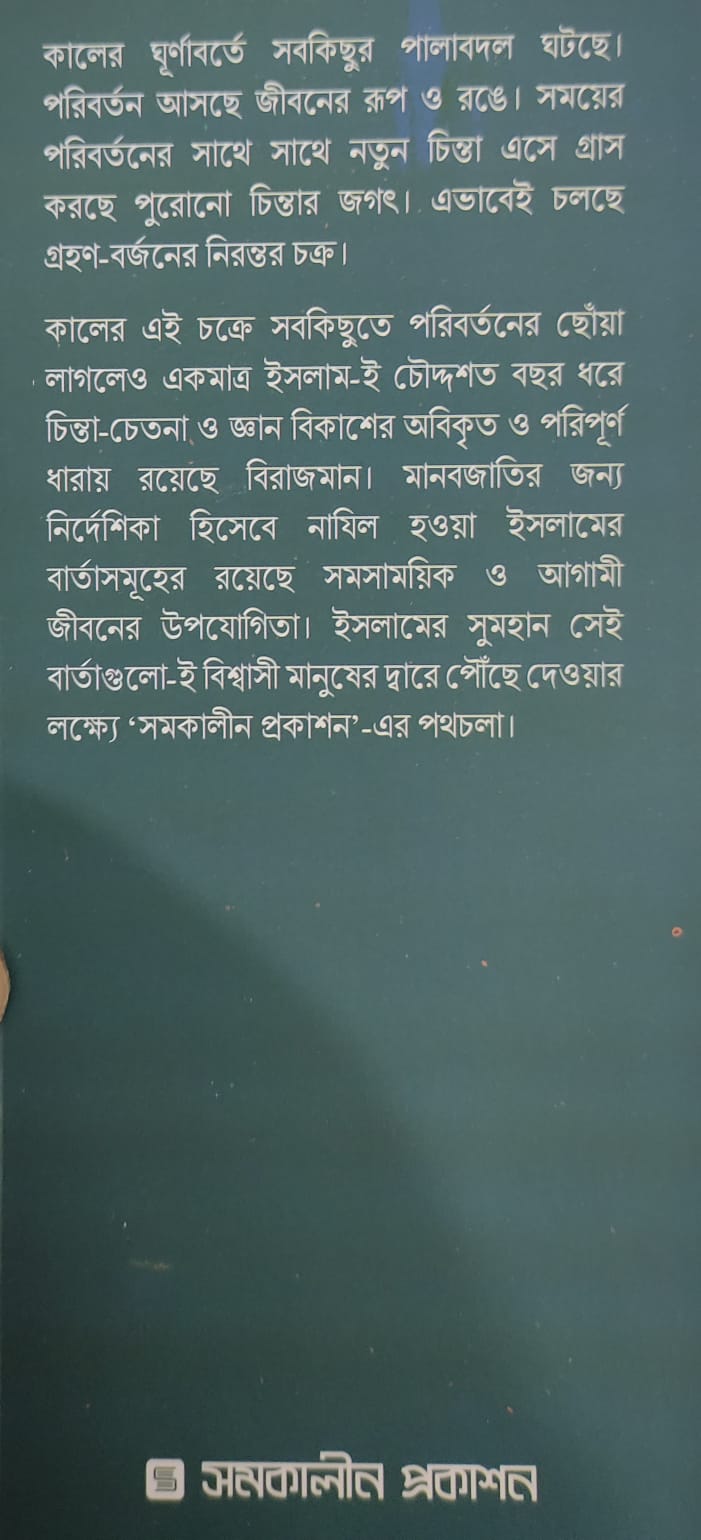 কালের ঘূর্ণাবর্তে সবকিছুর পালাবদল ঘটছে।
পরিবর্তন আসছে জীবনের রূপ ও রঙে। সময়ের
পরিবর্তনের সাথে সাথে নতুন চিন্তা এসে গ্রাস
করছে পুরোনো চিন্তার জগৎ। এভাবেই চলছে
গ্রহণ-বর্জনের নিরন্তর চক্র।
কালের এই চক্রে সবকিছুতে পরিবর্তনের ছোঁয়া
লাগলেও একমাত্র ইসলাম-ই চৌদ্দশত বছর ধরে
চিন্তা-চেতনা ও জ্ঞান বিকাশের অবিকৃত ও পরিপূর্ণ
ধারায় রয়েছে বিরাজমান। মানবজাতির জন্য
নির্দেশিকা হিসেবে নাযিল হওয়া ইসলামের
বার্তাসমূহের রয়েছে সমসাময়িক ও আগামী
জীবনের উপযোগিতা। ইসলামের সুমহান সেই
বার্তাগুলো-ই বিশ্বাসী মানুষের দ্বারে পৌঁছে দেওয়ার
লক্ষ্যে ‘সমকালীন প্রকাশন’-এর পথচলা।
সমকালীন প্রকাশন